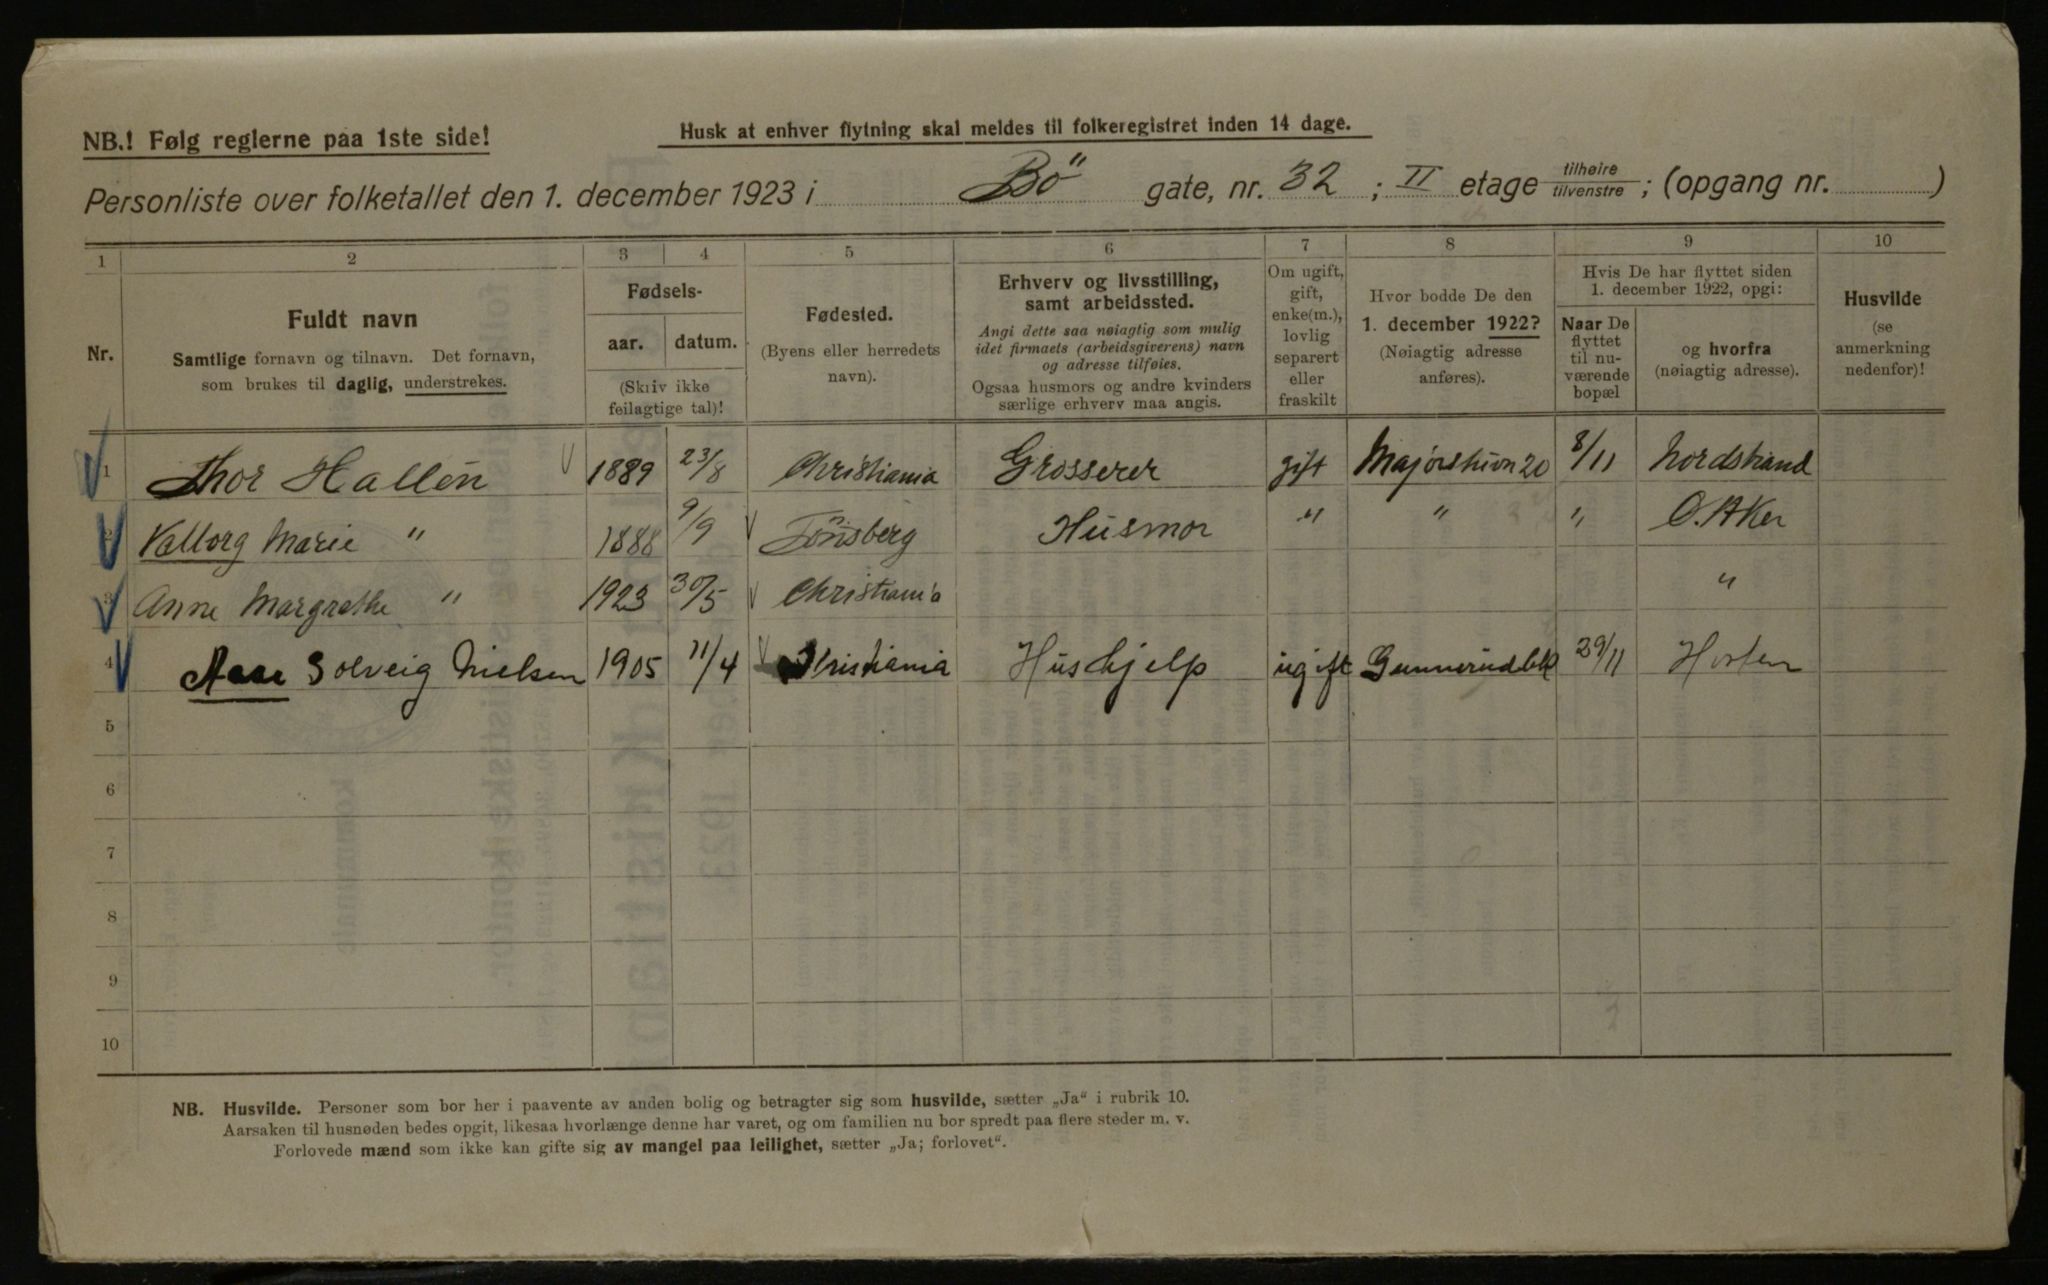 NB.! Følg reglerne paa 1ste side!
Husk at enhver flytning skal meldes til folkeregistret inden 14 dage.
Personliste over folketallet den 1. december 1923 i Bö gate, nr. 32 ; II etage tilhøire tilvenstre ; (opgang nr. )
1 2 3 4 5 6 7 8 9 10
Nr.
Fuldt navn
Samtlige fornavn og tilnavn. Det fornavn,
som brukes til daglig, understrekes.
Fødsels-
aar. datum.
(Skriv ikke
feilagtige tal)!
Fødested.
(Byens eller herredets
navn).
Erhverv og livsstilling,
samt arbeidssted.
Angi dette saa nøiagtig som mulig
idet firmaets (arbeidsgiverens) navn
og adresse tilføies.
Ogsaa husmors og andre kvinders
særlige erhverv maa angis.
Om ugift,
gift,
enke(m.),
lovlig
separert
eller
fraskilt
Hvor bodde De den
1. december 1922?
(Nøiagtig adresse
anføres).
Hvis De har flyttet siden
1. december 1922, opgi:
Naar De
flyttet
til nu-
værende
bopæl
og hvorfra
(nøiagtig adresse).
Husvilde
(se
anmerkning
nedenfor)!
1 Thor Hallén 1889 23/8 Christiania Grosserer gift Majorstuvn 20 8/11 Nordstrand
2 Valborg Marie " 1888 9/9 Tönsberg Husmor " " " Ö. Aker
3 Anne Margrethe " 1923 30/5 Christiania "
4 Solveig Nielsen 1905 11/4 Kristiania Hushjelp ugift 29/11 Horten
5
6
7
8
9
10
NB. Husvilde. Personer som bor her i paavente av anden bolig og betragter sig som husvilde, sætter „Ja“ i rubrik 10.
Aarsaken til husnøden bedes opgit, likesaa hvorlænge denne har varet, og om familien nu bor spredt paa flere steder m. v.
Forlovede mænd som ikke kan gifte sig av mangel paa leilighet, sætter „Ja; forlovet“.